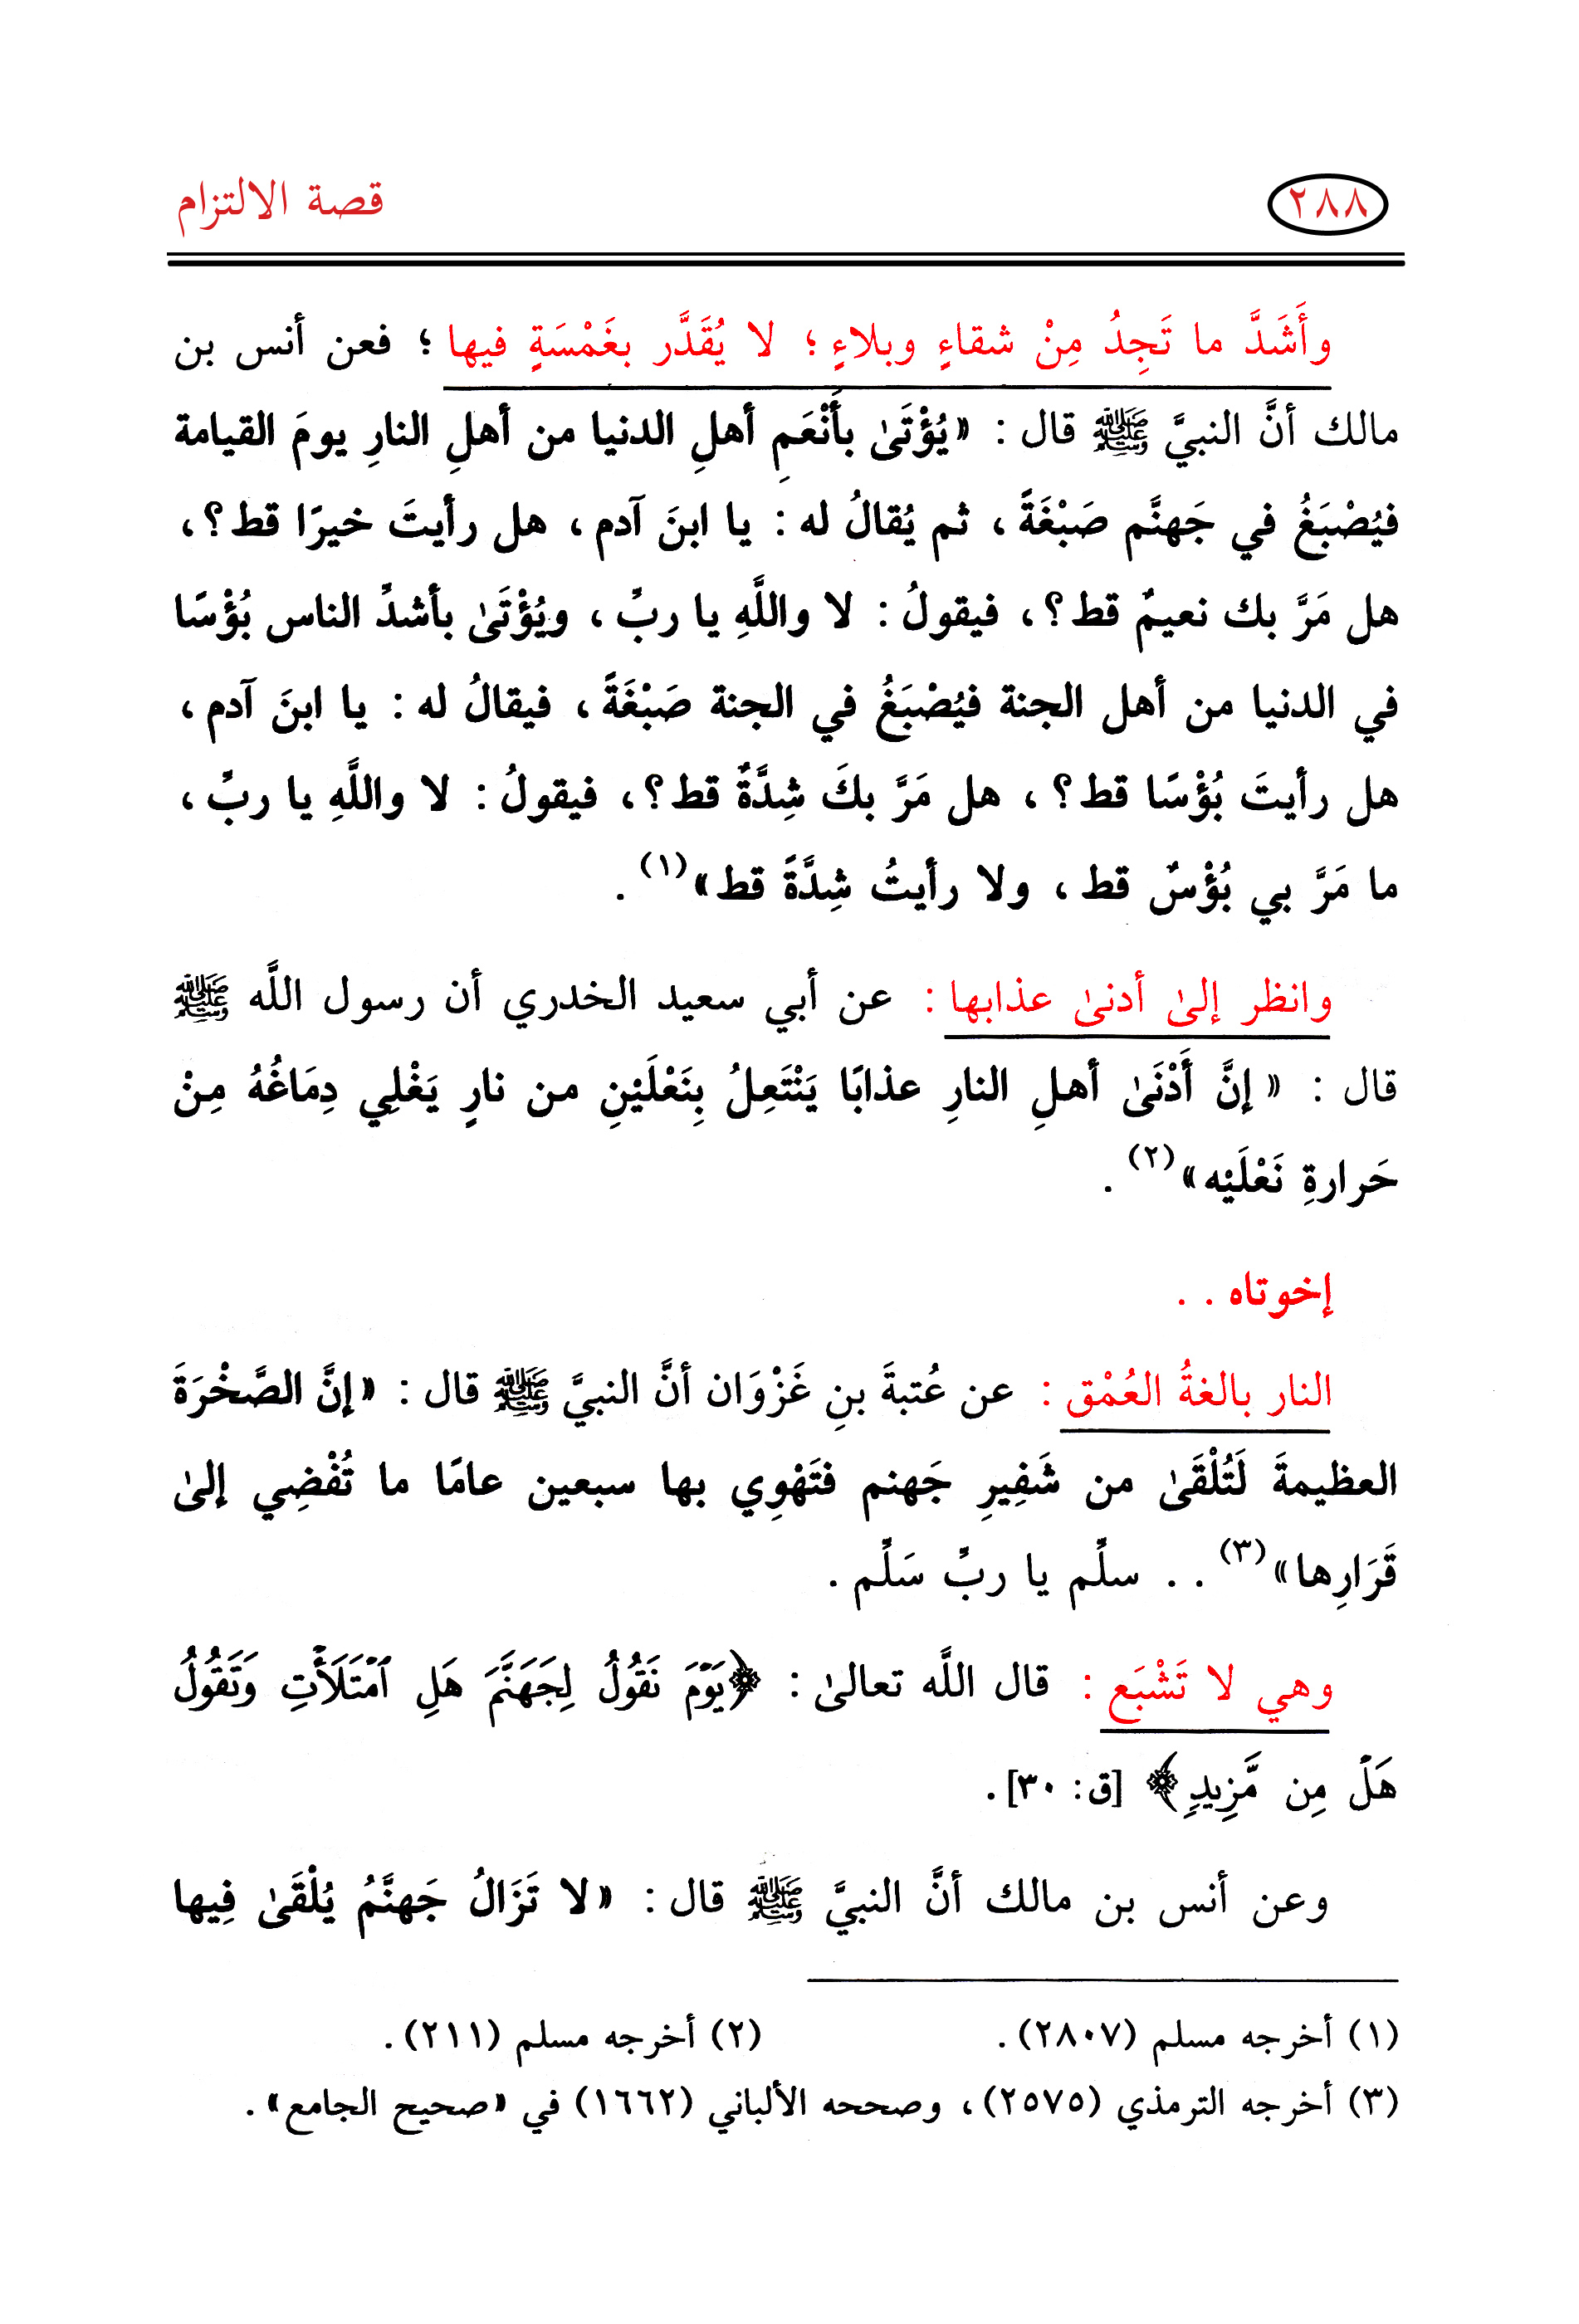 ٢٨٨ قصة الالتزام
وأَشَدَّ ما تَجِدُ مِنْ شقاءٍ وبلاءٍ ؛ لا يُقَدَّر بغَمْسَةٍ فيها ؛ فعن أنس بن
مالك أنَّ النبيَّ ﷺ قال : «يُؤْتَىٰ بأَنْعَمِ أهلِ الدنيا من أهلِ النارِ يومَ القيامة
فيُصْبَغُ في جَهنَّم صَبْغَةً ، ثم يُقالُ له : يا ابنَ آدم ، هل رأيتَ خيرًا قط ؟ ،
هل مَرَّ بك نعيمٌ قط ؟ ، فيقولُ : لا واللَّهِ يا ربِّ ، ويُؤْتَىٰ بأشدِّ الناس بُؤْسًا
في الدنيا من أهل الجنة فيُصْبَغُ في الجنة صَبْغَةً ، فيقالُ له : يا ابنَ آدم ،
هل رأيتَ بُؤْسًا قط ؟ ، هل مَرَّ بكَ شِدَّةٌ قط ؟ ، فيقولُ : لا واللَّهِ يا ربِّ ،
ما مَرَّ بي بُؤْسٌ قط ، ولا رأيتُ شِدَّةً قط»(١) .
وانظر إلىٰ أدنىٰ عذابها : عن أبي سعيد الخدري أن رسول اللَّه ﷺ
قال : «إنَّ أَدْنَىٰ أهلِ النارِ عذابًا يَنْتَعِلُ بِنَعْلَيْنِ من نارٍ يَغْلِي دِمَاغُهُ مِنْ
حَرارةِ نَعْلَيْه»(٢) .
إخوتاه . .
النار بالغةُ العُمْق : عن عُتبةَ بنِ غَزْوَان أنَّ النبيَّ ﷺ قال : «إنَّ الصَّخْرَةَ
العظيمةَ لَتُلْقَىٰ من شَفِيرِ جَهنم فتَهْوِي بها سبعين عامًا ما تُفْضِي إلىٰ
قَرَارِها»(٣) . . سلِّم يا ربِّ سَلِّم .
وهي لا تَشْبَع : قال اللَّه تعالىٰ : ﴿يَوْمَ نَقُولُ لِجَهَنَّمَ هَلِ ٱمْتَلَأْتِ وَتَقُولُ
هَلْ مِن مَّزِيدٍ﴾ [ق: ٣٠] .
وعن أنس بن مالك أنَّ النبيَّ ﷺ قال : «لا تَزَالُ جَهنَّمُ يُلْقَىٰ فِيها
(١) أخرجه مسلم (٢٨٠٧) . (٢) أخرجه مسلم (٢١١) .
(٣) أخرجه الترمذي (٢٥٧٥) ، وصححه الألباني (١٦٦٢) في «صحيح الجامع» .